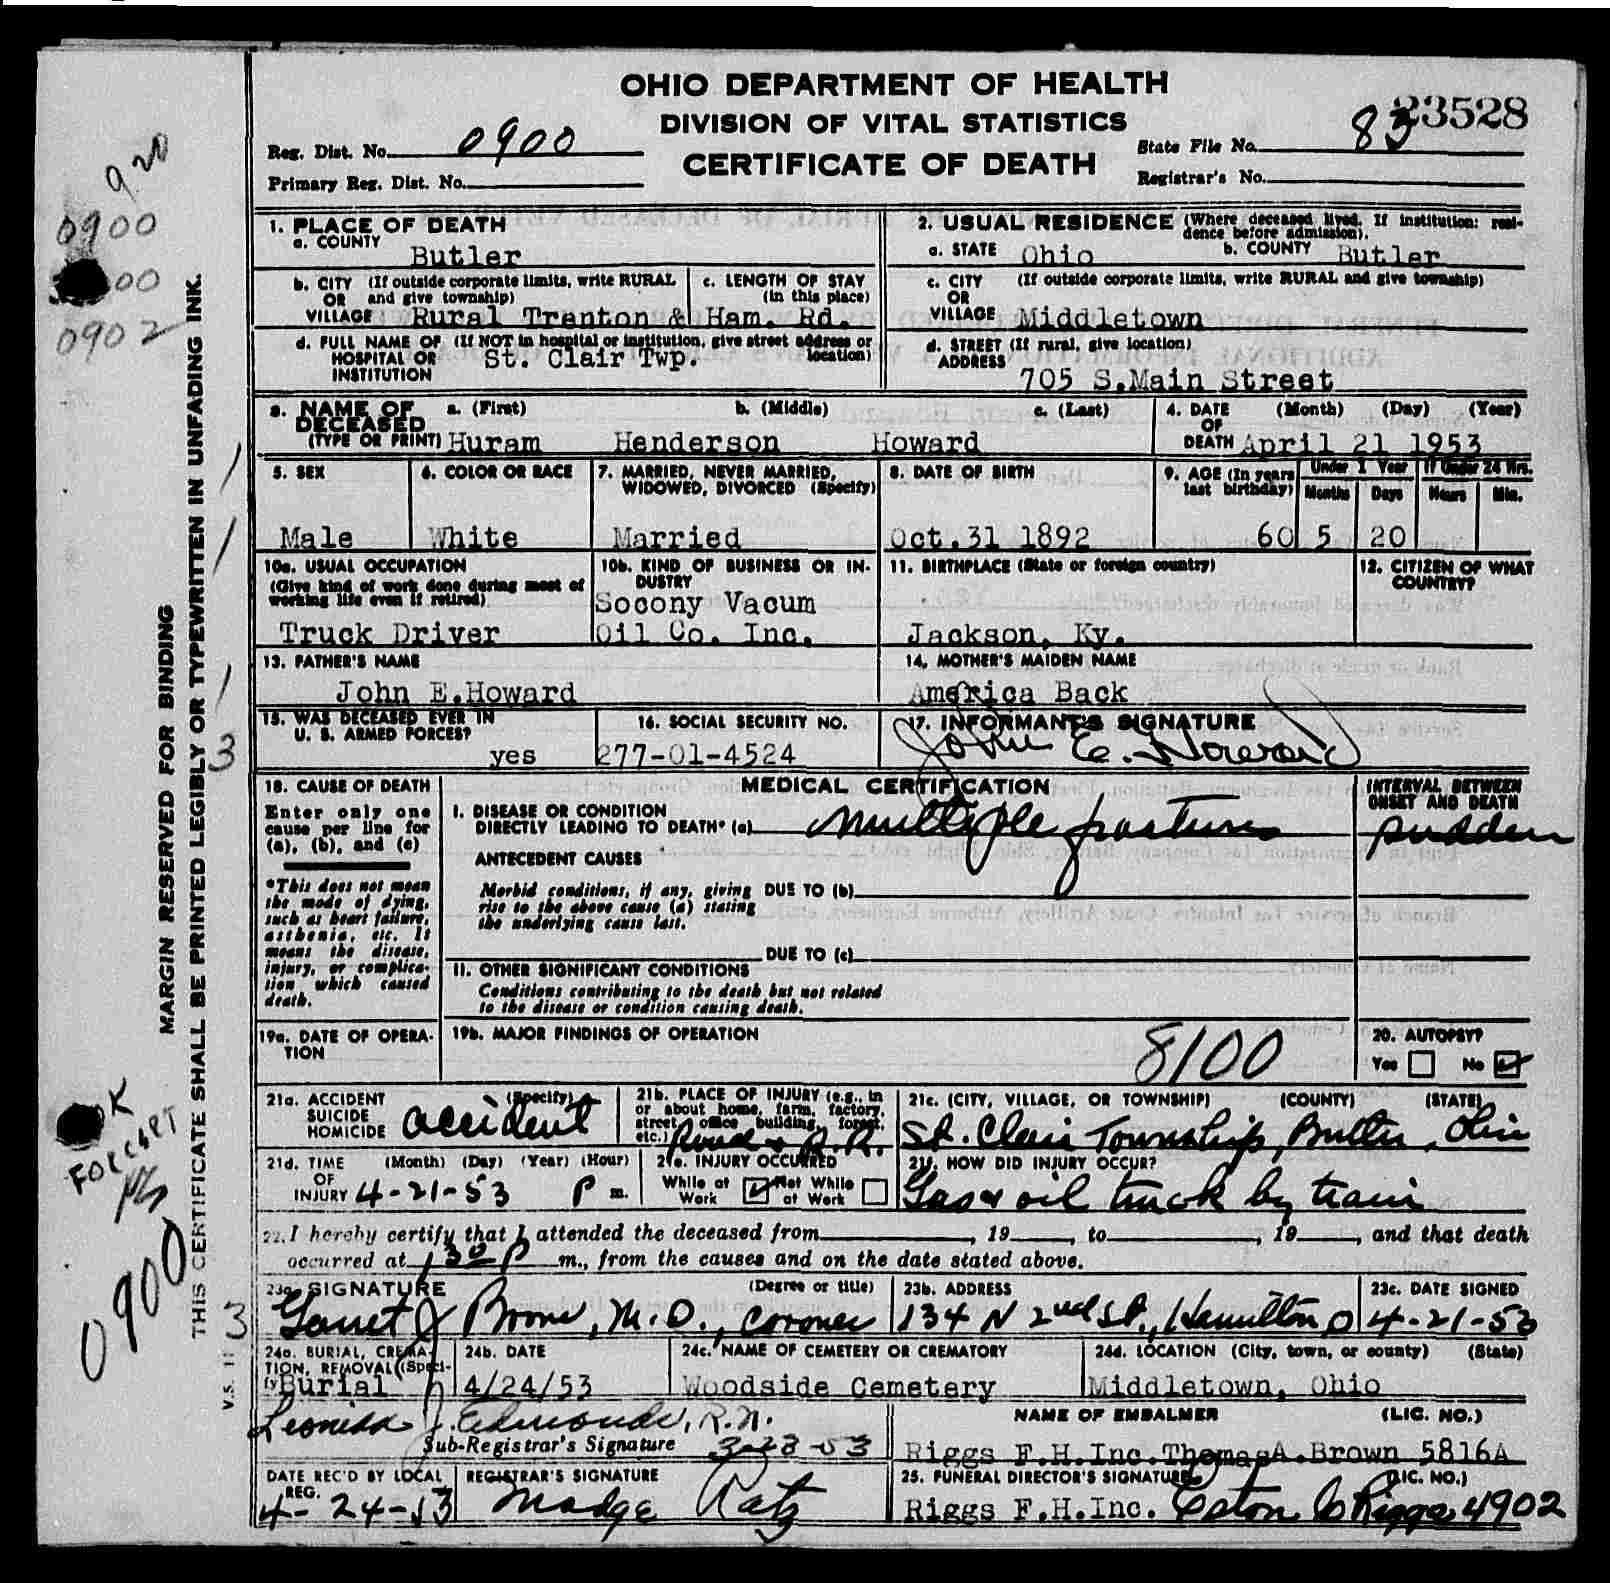 OHIO DEPARTMENT OF HEALTH
DIVISION OF VITAL STATISTICS
CERTIFICATE OF DEATH
Reg. Dist. No. 0900
Primary Reg. Dist. No.
State File No. 83 23528
Registrar's No.
920
0900
00
0902
MARGIN RESERVED FOR BINDING
THIS CERTIFICATE SHALL BE PRINTED LEGIBLY OR TYPEWRITTEN IN UNFADING INK.
1. PLACE OF DEATH
a. COUNTY Butler
b. CITY (If outside corporate limits, write RURAL
OR and give township)
VILLAGE Rural Trenton & Ham. Rd.
c. LENGTH OF STAY
(in this place)
d. FULL NAME OF (If NOT in hospital or institution, give street address or
HOSPITAL OR St. Clair Twp. location)
INSTITUTION
2. USUAL RESIDENCE (Where deceased lived. If institution: resi-
dence before admission).
a. STATE Ohio b. COUNTY Butler
c. CITY (If outside corporate limits, write RURAL and give township)
OR
VILLAGE Middletown
d. STREET (If rural, give location)
ADDRESS
705 S.Main Street
3. NAME OF a. (First) b. (Middle) c. (Last)
DECEASED
(TYPE OR PRINT) Huram Henderson Howard
4. DATE (Month) (Day) (Year)
OF
DEATH April 21 1953
5. SEX
Male
6. COLOR OR RACE
White
7. MARRIED, NEVER MARRIED,
WIDOWED, DIVORCED (Specify)
Married
8. DATE OF BIRTH
Oct.31 1892
9. AGE (In years
last birthday)
Under 1 Year
Months Days
If Under 24 Hrs.
Hours Min.
60 5 20
10a. USUAL OCCUPATION
(Give kind of work done during most of
working life even if retired)
Truck Driver
10b. KIND OF BUSINESS OR IN-
DUSTRY
Socony Vacum
Oil Co. Inc.
11. BIRTHPLACE (State or foreign country)
Jackson, Ky.
12. CITIZEN OF WHAT
COUNTRY?
13. FATHER'S NAME
John E.Howard
14. MOTHER'S MAIDEN NAME
America Back
15. WAS DECEASED EVER IN
U. S. ARMED FORCES?
yes
16. SOCIAL SECURITY NO.
277-01-4524
17. INFORMANT'S SIGNATURE
John E. Howard
18. CAUSE OF DEATH
Enter only one
cause per line for
(a), (b), and (c)
*This does not mean
the mode of dying,
such as heart failure,
asthenia, etc. It
means the disease,
injury, or complica-
tion which caused
death.
MEDICAL CERTIFICATION
I. DISEASE OR CONDITION
DIRECTLY LEADING TO DEATH* (a) Multiple
ANTECEDENT CAUSES
Morbid conditions, if any, giving DUE TO (b)
rise to the above cause (a) stating
the underlying cause last.
DUE TO (c)
II. OTHER SIGNIFICANT CONDITIONS
Conditions contributing to the death but not related
to the disease or condition causing death.
INTERVAL BETWEEN
ONSET AND DEATH
sudden
19a. DATE OF OPERA-
TION
19b. MAJOR FINDINGS OF OPERATION
8100
20. AUTOPSY?
Yes No
21a. ACCIDENT (Specify)
SUICIDE
HOMICIDE accident
21b. PLACE OF INJURY (e.g., in
or about home, farm, factory,
street, office building, forest,
etc.) Road & R.R.
21c. (CITY, VILLAGE, OR TOWNSHIP) (COUNTY) (STATE)
St. Clair Township, Butler, Ohio
21d. TIME (Month) (Day) (Year) (Hour)
OF
INJURY 4-21-53 P m.
21e. INJURY OCCURRED
While at Not While
Work at Work
21f. HOW DID INJURY OCCUR?
Gas & oil truck by train
22. I hereby certify that I attended the deceased from , 19 , to , 19 , and that death
occurred at 1 30 P m., from the causes and on the date stated above.
23a. SIGNATURE (Degree or title)
Garret J Boone, M.D., coroner
23b. ADDRESS
134 N 2nd St., Hamilton O
23c. DATE SIGNED
4-21-53
24a. BURIAL, CREMA-
TION, REMOVAL (Speci-
fy) Burial
24b. DATE
4/24/53
24c. NAME OF CEMETERY OR CREMATORY
Woodside Cemetery
24d. LOCATION (City, town, or county) (State)
Middletown, Ohio
J. Edmonds, R.N.
Sub-Registrar's Signature 3-23-53
NAME OF EMBALMER (LIC. NO.)
Riggs F.H.Inc.ThomasA.Brown 5816A
DATE REC'D BY LOCAL
REG.
4-24-53
REGISTRAR'S SIGNATURE
Madge Ratz
25. FUNERAL DIRECTOR'S SIGNATURE (LIC. NO.)
Riggs F.H.Inc. Eston C Riggs 4902
OK
0900
3
3
V.S. 1